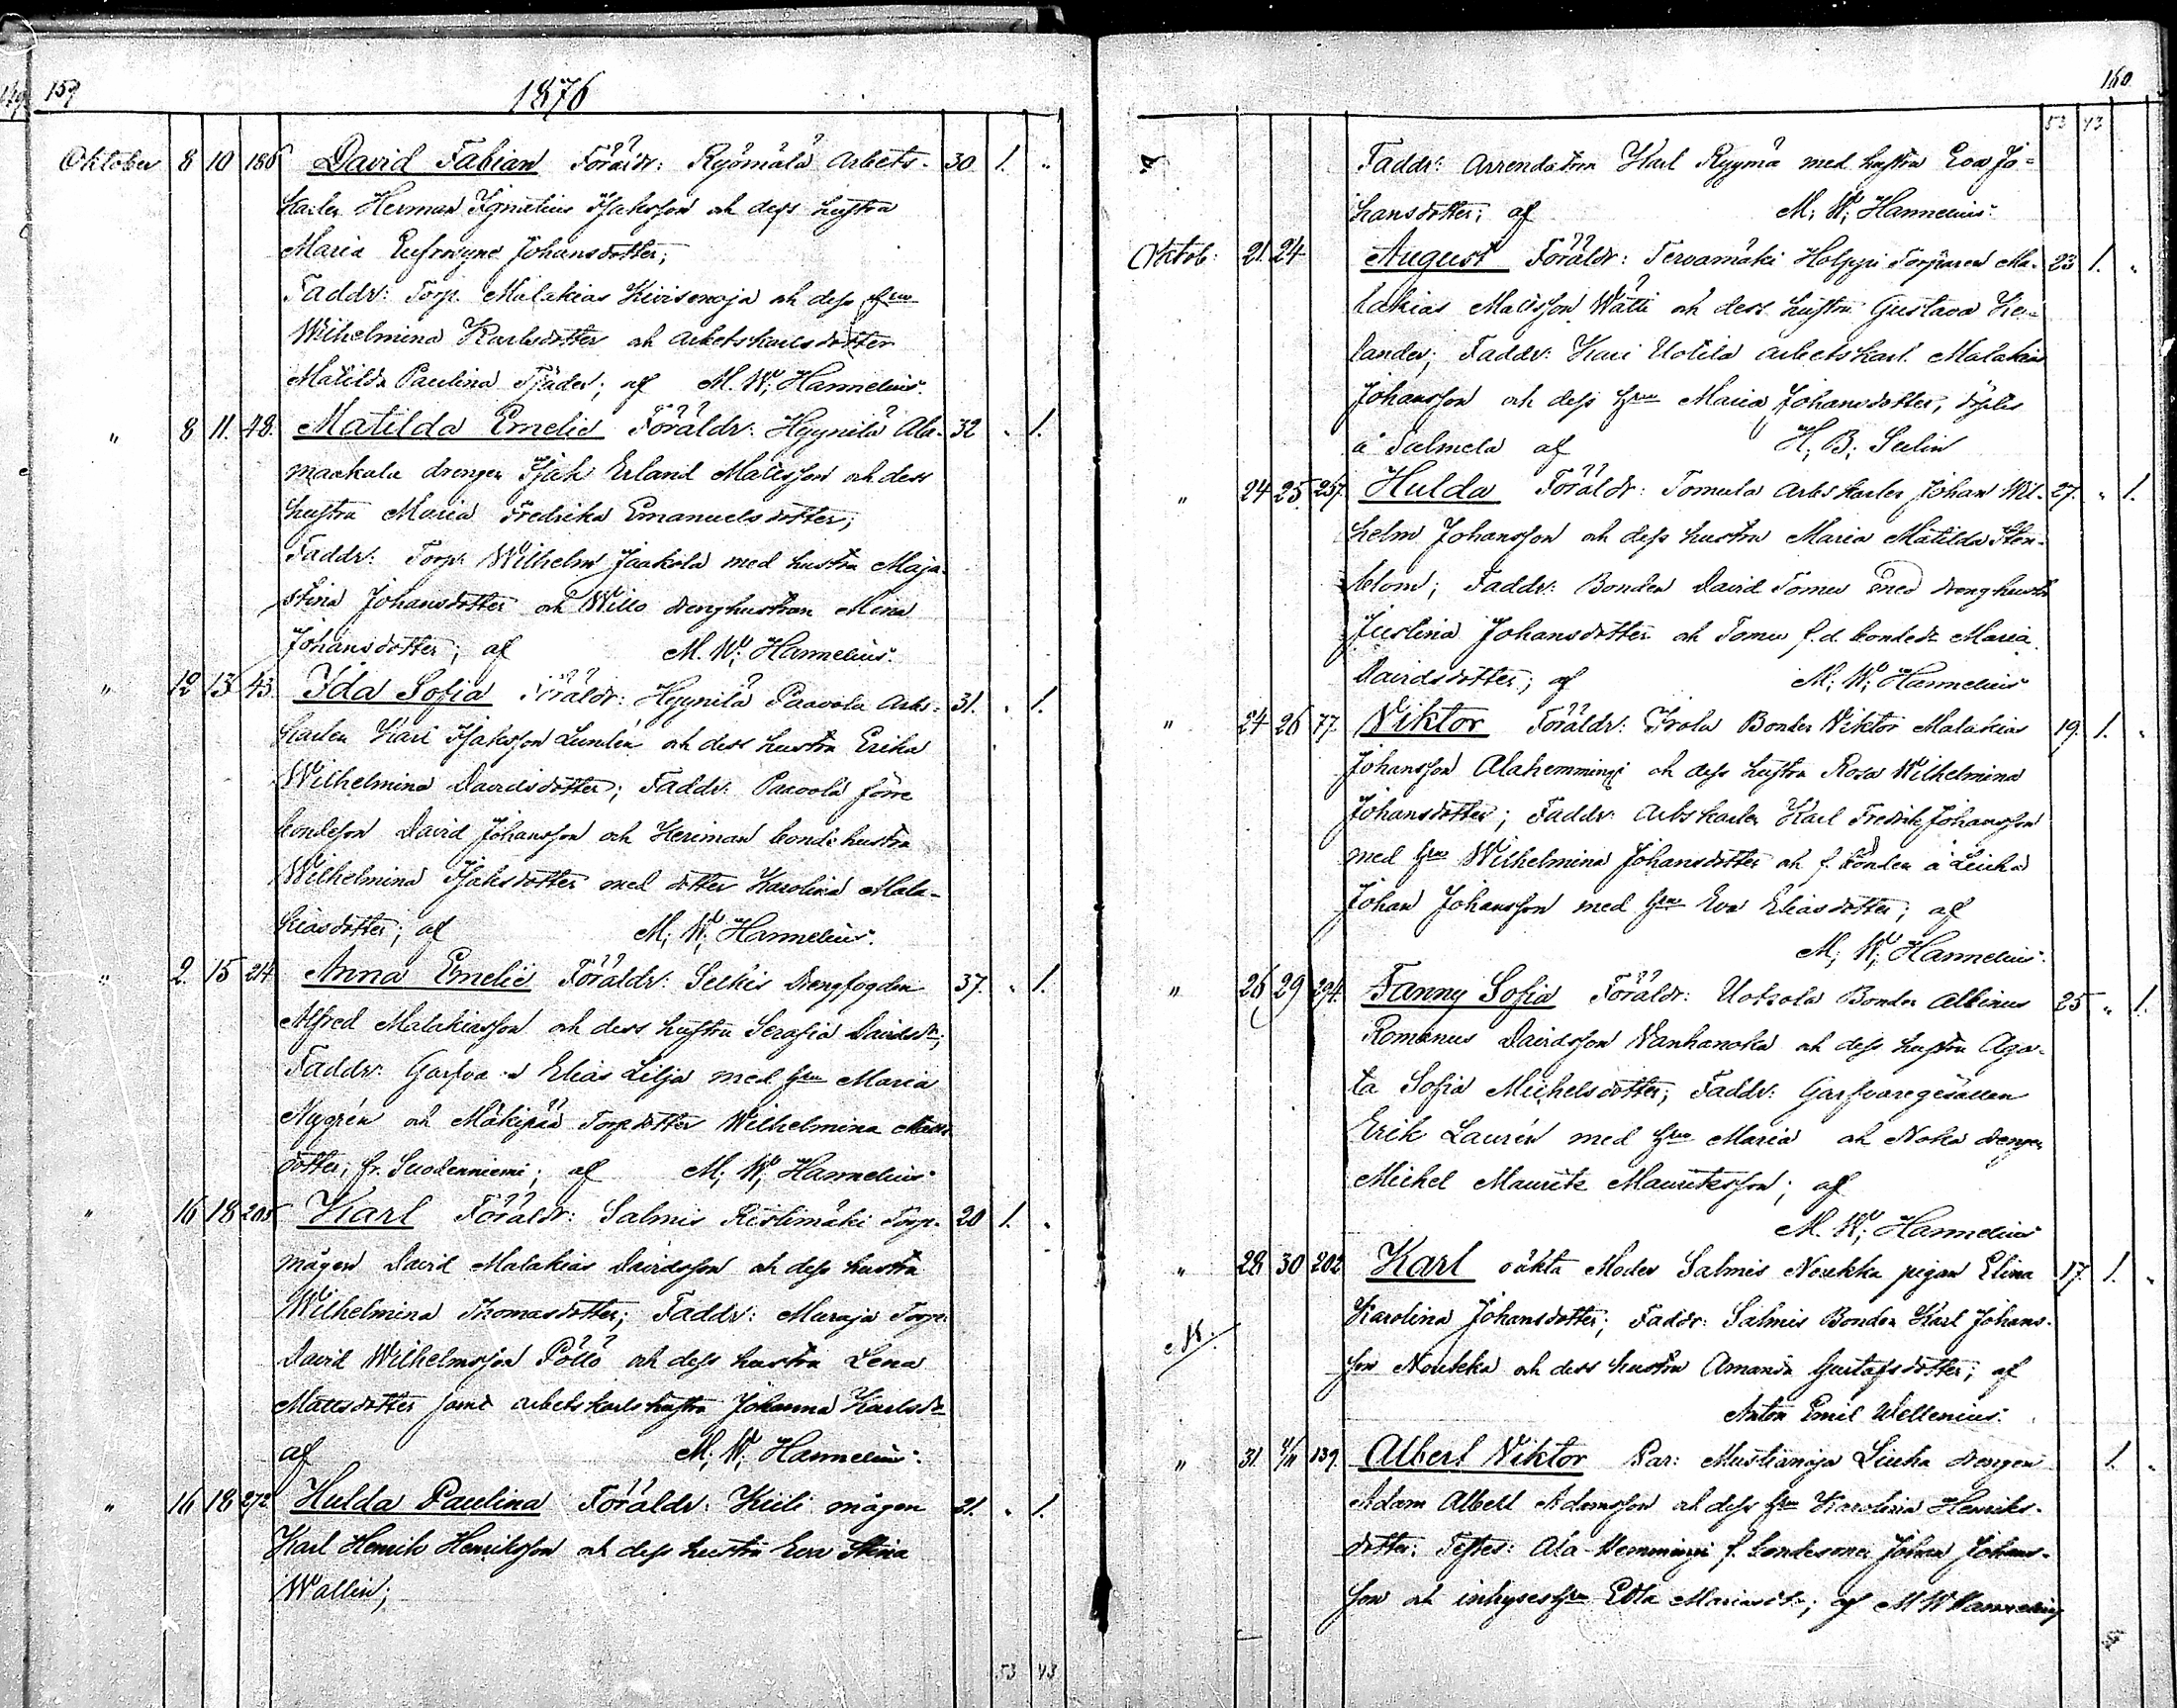 159
1876
Oktober 8 10 186 David Fabian Föräldr: Ryömälä Arbets- 30. 1. "
karlen Herman Ignatius Isaksson och dess hustru
Maria Eufrosyne Johansdotter;
Faddr: Torp. Malakias Kivisenoja och dess hru
Wilhelmina Karlsdotter och arbetskarlsdotter
Matilda Paulina Tjäder; af M. W. Hannelius.
" 8 11. 48. Matilda Emelie Föräldr: Hyynilä Ala- 32 " 1.
maakala drengen Isak Erland Mattsson och dess
hustru Maria Fredrika Emanuelsdotter;
Faddr: Torp. Wilhelm Jaakola med hustru Maja
Stina Johansdotter och Willo drenghustrun Mina
Johansdotter; af M. W. Hannelius.
" 12 13 43. Ida Sofia Föräldr: Hyynilä Paavola Arbs- 31. " 1.
karlen Karl Isaksson Lundén och dess hustru Erika
Wilhelmina Davidsdotter; Faddr: Paavola förre
bondeson David Johansson och Heriman bondehustru
Wilhelmina Isaksdotter med dotter Karolina Mala-
kiasdotter; af M. W. Hannelius.
" 2. 15 214. Anna Emelie Föräldr: Selkis Drengfogden 37. " 1.
Alfred Malakiasson och dess hustru Serafia Davidsdr;
Faddr: Elias Lilja med hru Maria
Nygrén och Mäkipää Torpdotter Wilhelmina Matts
dotter, fr. Suodenniemi; af M. W. Hannelius.
" 16 18 205 Karl Föräldr: Salmis Ristimäki Torp- 20 1. "
mågen David Malakias Davidsson och dess hustru
Wilhelmina Thomasdotter; Faddr: Muraja Torp.
David Wilhelmsson Pöllö och dess hustru Lena
Mattsdotter samt arbetskarlshustru Johanna Karlsdr
af M. W. Hannelius.
" 16 18 272. Hulda Paulina Föräldr: Kiili mågen 21. " 1.
Karl Henrik Henriksson och dess hustru Eva Stina
Wallin;
53 43
160.
53 43
Faddr: Arrendatorn Karl Ryymä med hustru Eva Jo-
hansdotter; af M. W. Hannelius.
Oktob: 21. 24 August Föräldr: Tervamäki Holppi Torparen Ma- 23 1. "
lakias Mattsson Wätti och dess hustru Gustava He-
lander; Faddr: Kari Uotila arbetskarl Malakias
Johansson och dess hru Maria Johansdotter, döptes
å Salmela af H. B. Selin
" 24 25. 257. Hulda Föräldr: Tomula Arbskarlen Johan Wil- 27. " 1.
helm Johansson och dess hustru Maria Matilda Sten-
blom; Faddr: Bonden David Tomu med drenghustr
Justina Johansdotter och Tomu f.d. bondedr Maria
Davidsdotter; af M. W. Hannelius
" 24 26 77. Viktor Föräldr: Frola Bonden Viktor Malakias 19. 1. "
Johansson Alahemmingi och dess hustru Rosa Wilhelmina
Johansdotter; Faddr: Arbskarlen Karl Fredrik Johansson
med hru Wilhelmina Johansdotter och f. bonden å Liuha
Johan Johansson med hru Eva Eliasdotter; af
M. W. Hannelius.
" 26 29 294. Fanny Sofia Föräldr: Uotsola Bonden Albinus 25 " 1.
Romanus Davidsson Vanhanoka och dess hustru Aga-
ta Sofia Michelsdotter; Faddr: Garfvaregesällen
Erik Laurén med hru Maria och Noka drengen
Michel Maurits Mauritsson; af
M. W. Hannelius
" 28. 30 202 Karl oäkta Moder Salmis Noukka pigan Elina 17. 1. "
Karolina Johansdotter; Faddr: Salmis Bonden Karl Johans-
son Noukka och dess hustru Amanda Gustafsdotter; af
Anton Emil Wellenius.
" 31. 139. Albert Viktor Par: Mustianoja Liuha drengen 1. "
Adam Albert Adamsson och dess hru Karolina Henriks-
dotter; Testes: Ala-Hemmingi f. bondesonen Johan Johans-
son och inhyseshru Edla Mariasdr; af M W Hannelius